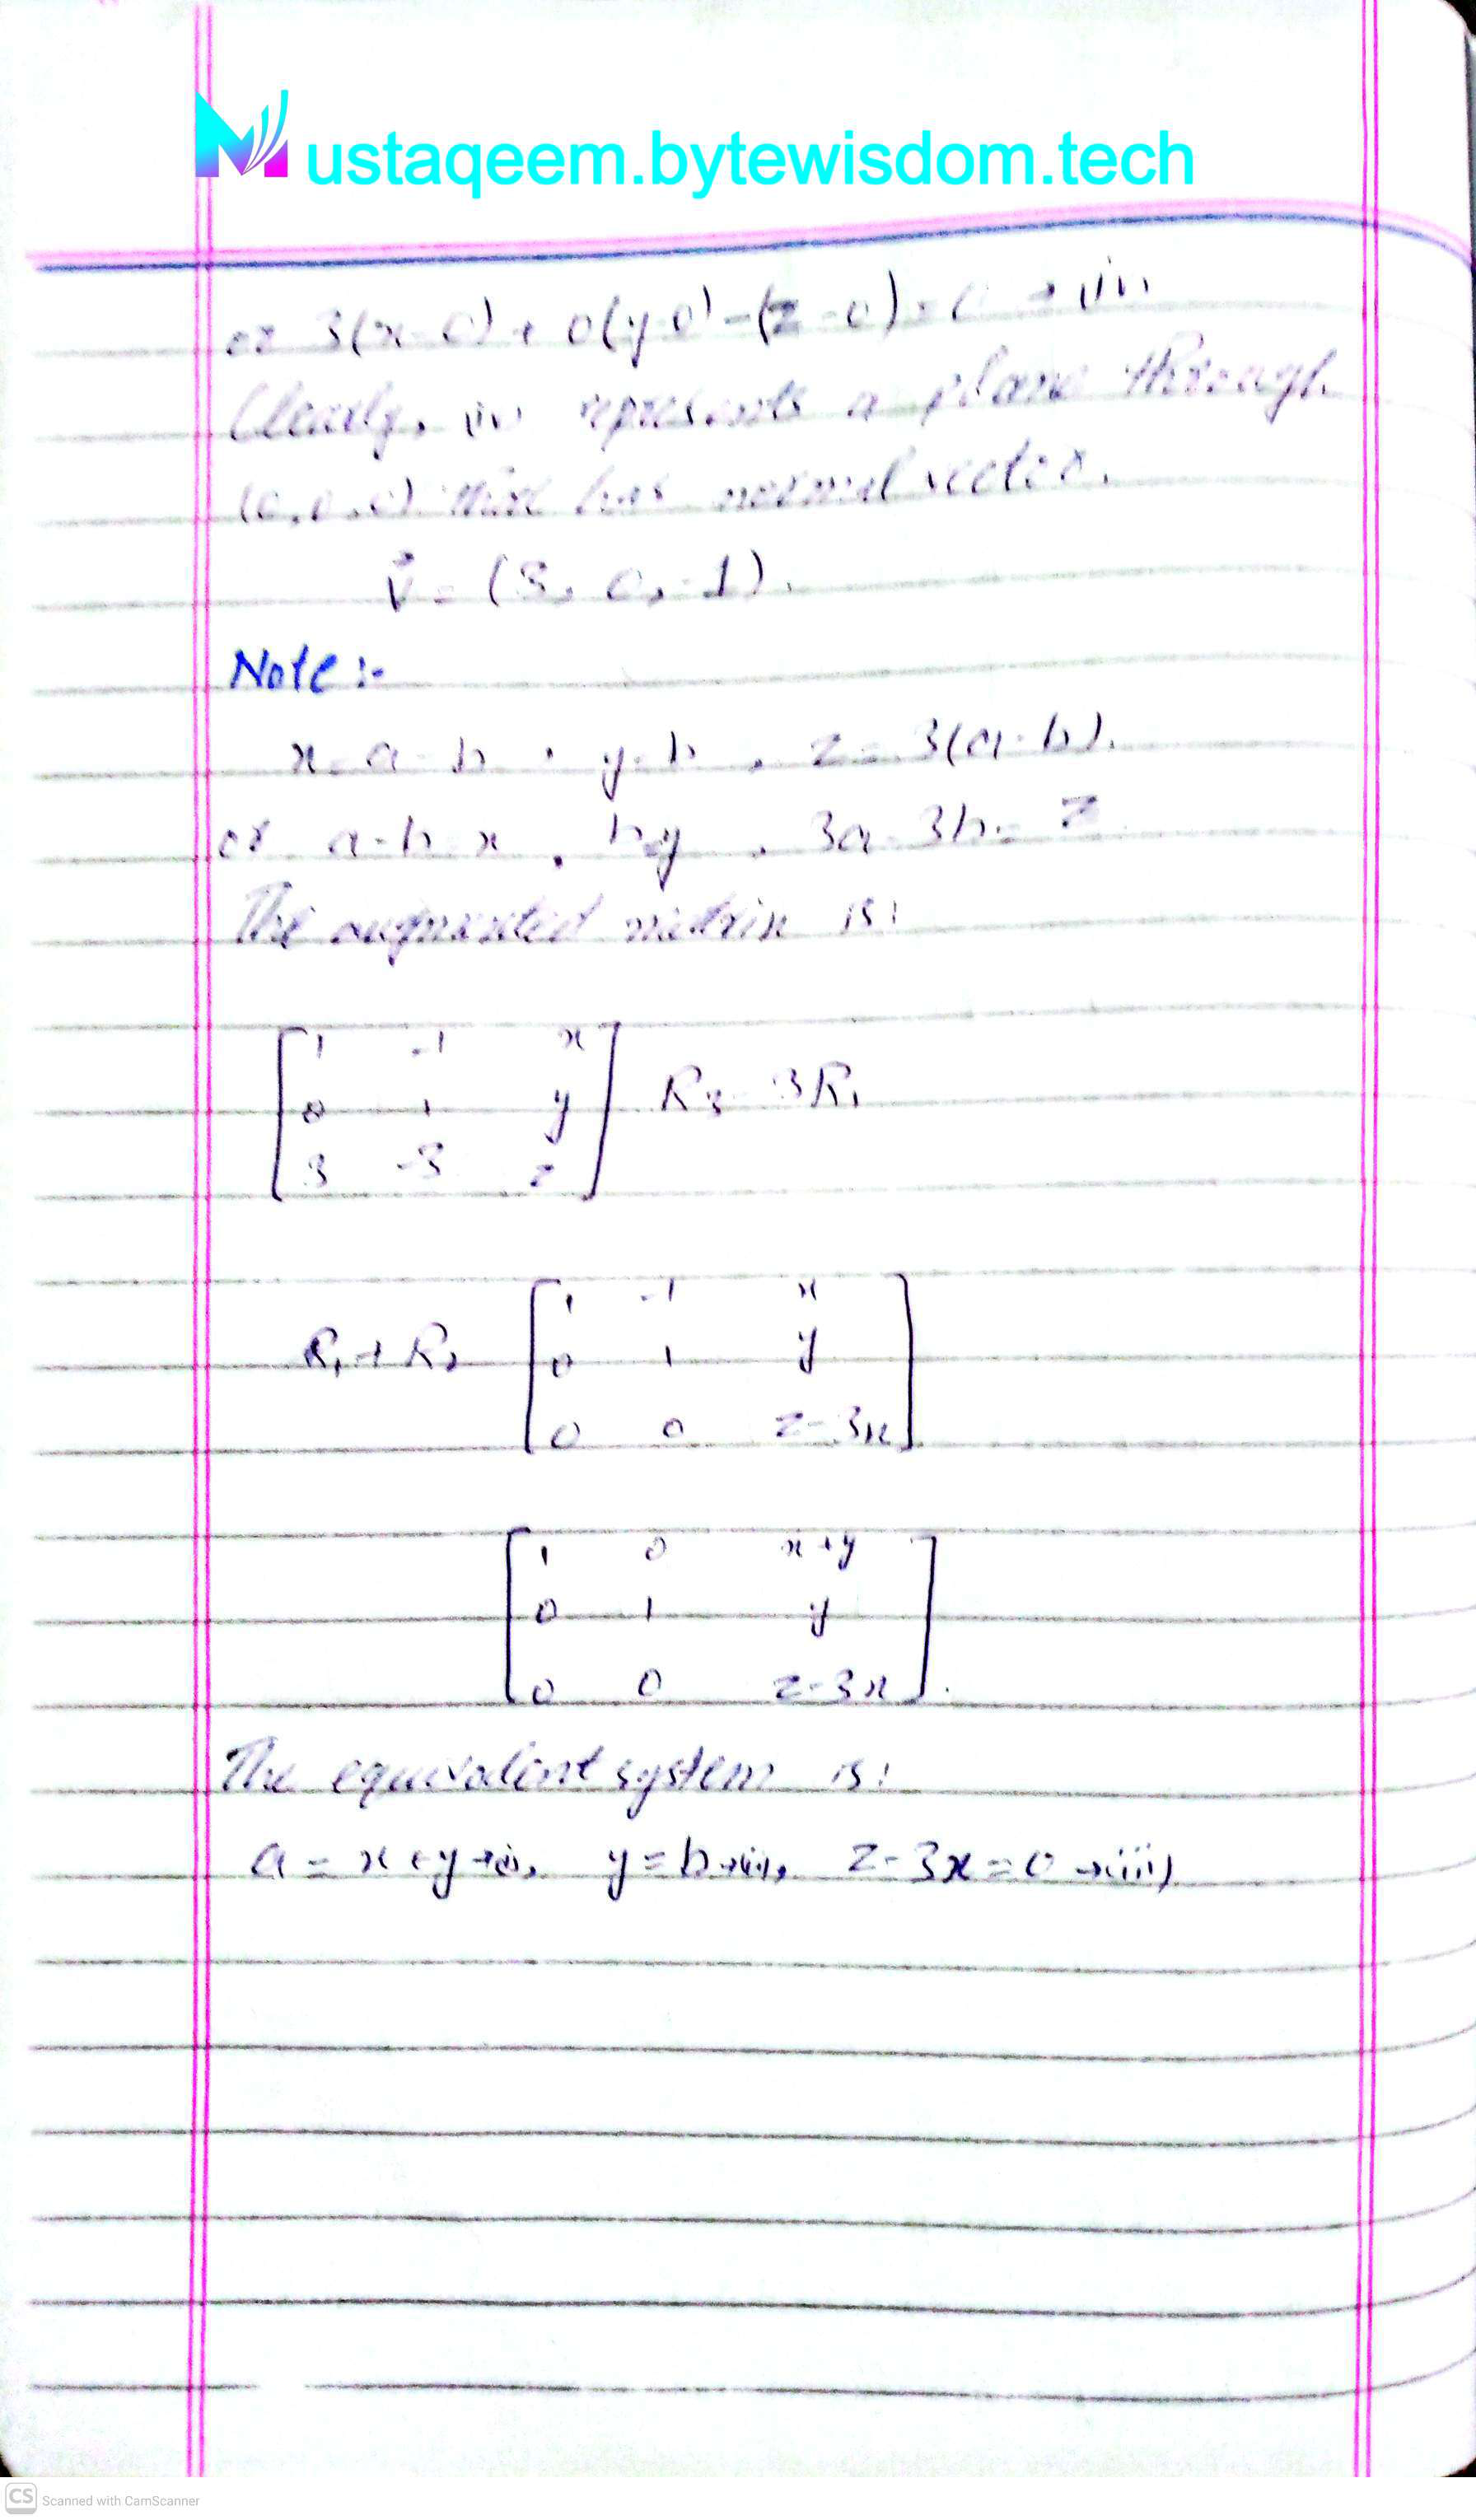 Mustaqeem.bytewisdom.tech
or 3(x-0) + 0(y-0) - (z-0) = 0 → iv)
Clearly, iv) represents a plane through
(0,0,0) that has normal vector.
v⃗ = (3, 0, -1).
Note :-
x = a - b , y = b , z = 3(a-b).
or a-b = x , b=y , 3a-3b = z
The augmented matrix is:
1 -1 x
0 1 y R3 - 3R1
3 -3 z
1 -1 x
R1 + R2 0 1 y
0 0 z-3x
1 0 x+y
0 1 y
0 0 z-3x .
The equivalent system is:
a = x+y → i), y = b → ii), z-3x = 0 → iii)
CS Scanned with CamScanner